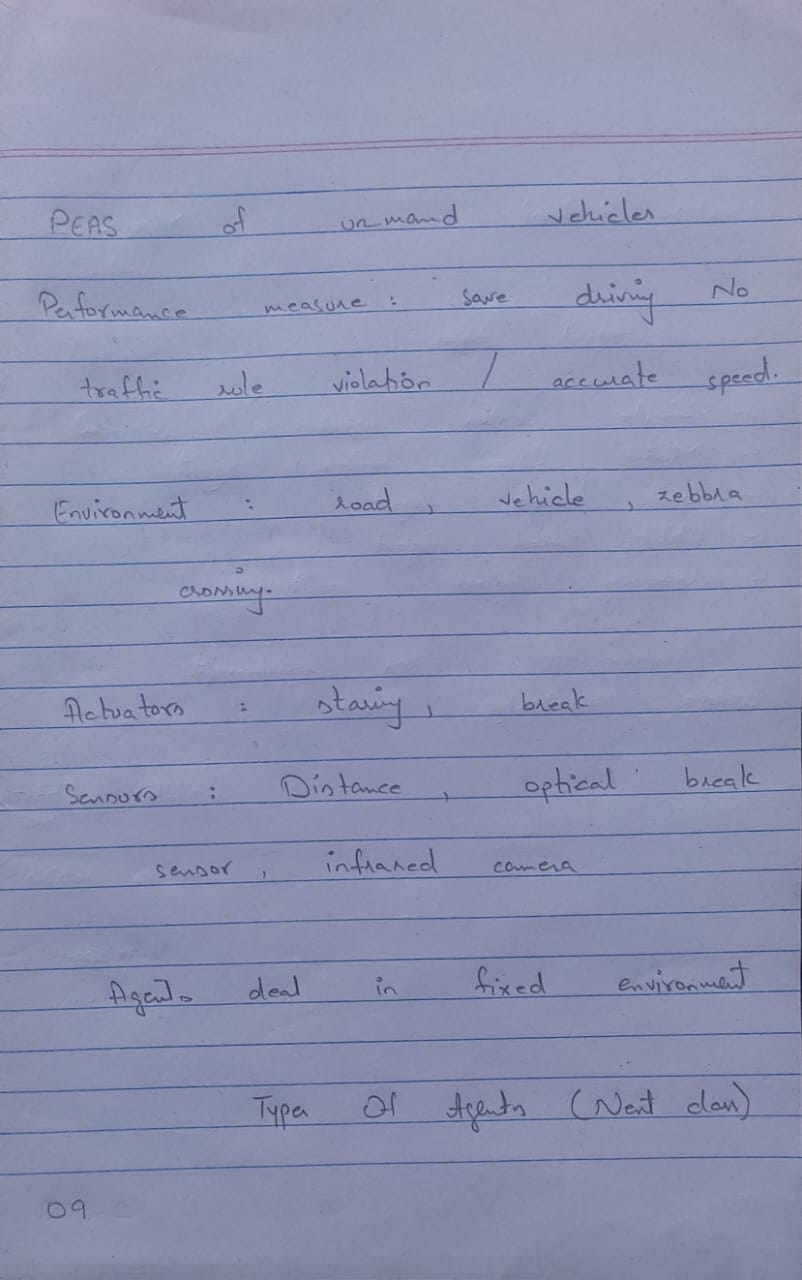 PEAS of unmand vehicles
Performance measure : save driving No
traffic rule violation / accurate speed.
Environment : road , vehicle , zebbra
crossing.
Actuators : staring , break
Sensors : Distance , optical break
sensor , infrared camera
Agents deal in fixed environment
Types Of Agents (Next class)
09